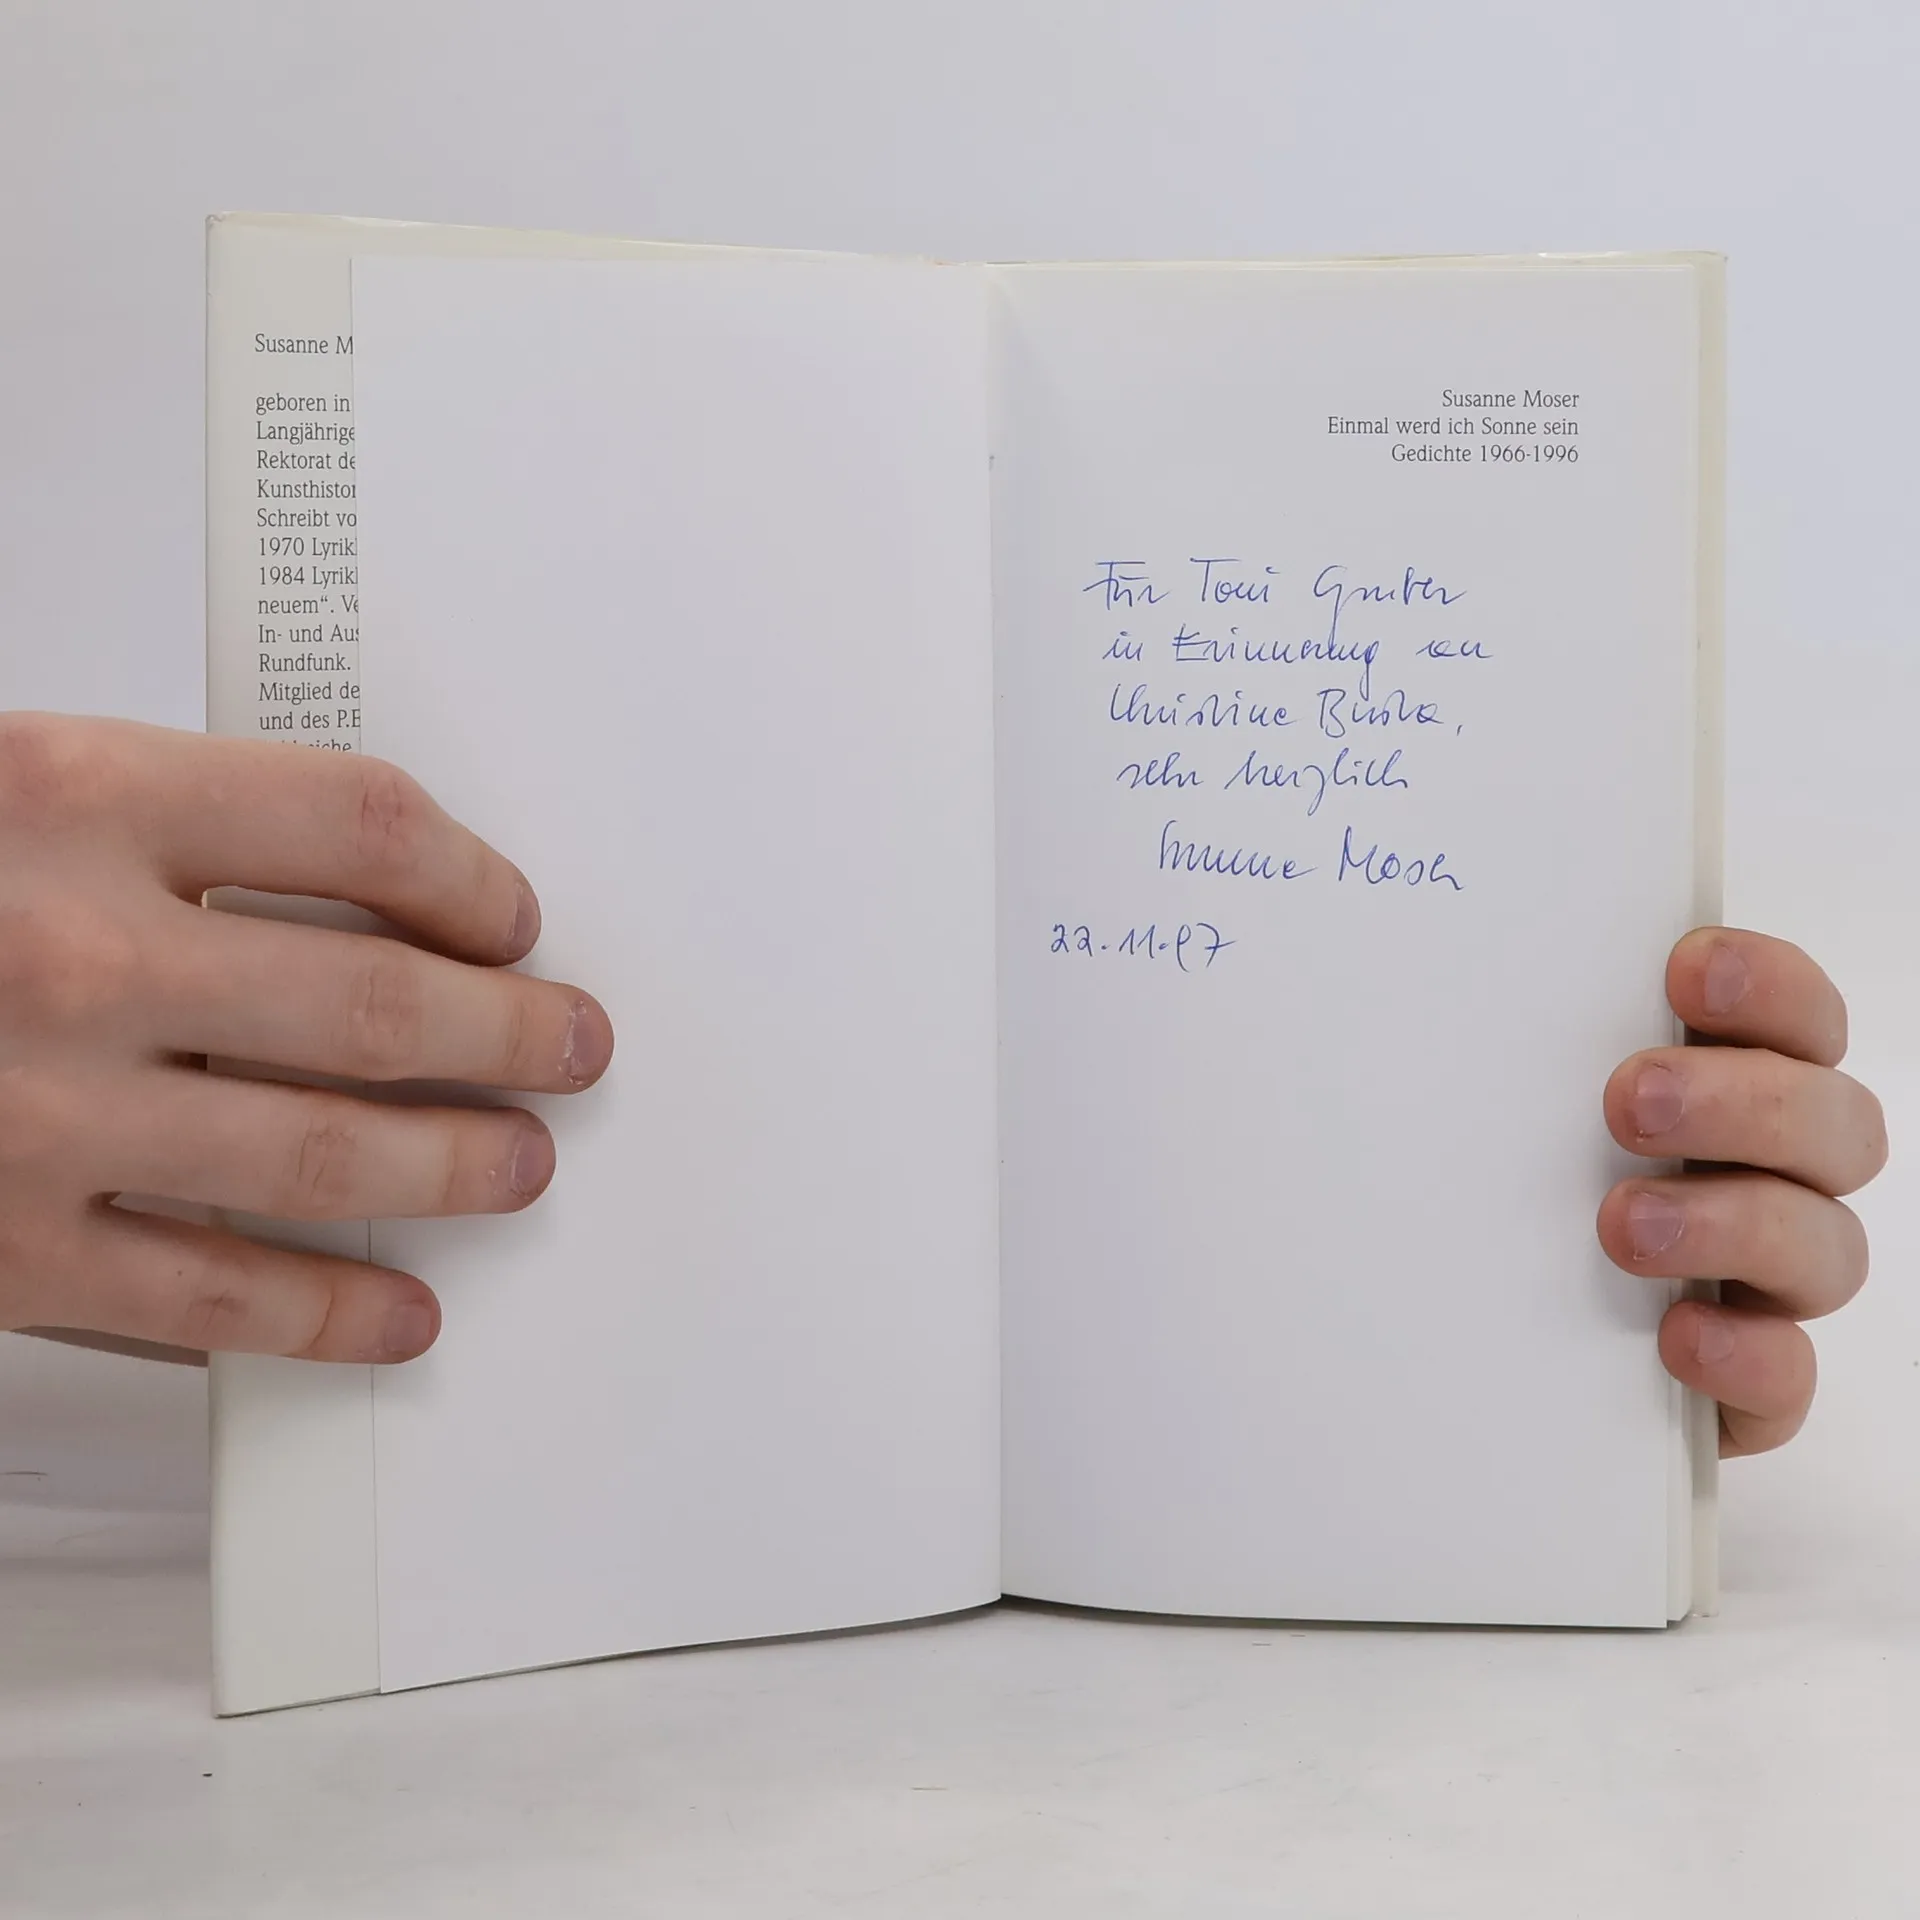 Susanne M
geboren in
Langjährige
Rektorat de
Kunsthistor
Schreibt vo
1970 Lyrik
1984 Lyrik
neuem“. Ve
In- und Aus
Rundfunk.
Mitglied de
und des P.E
Susanne Moser
Einmal werd ich Sonne sein
Gedichte 1966-1996
Für Toni Gruber
in Erinnerung an
Christine Busta,
sehr herzlich
Susanne Moser
22.11.97